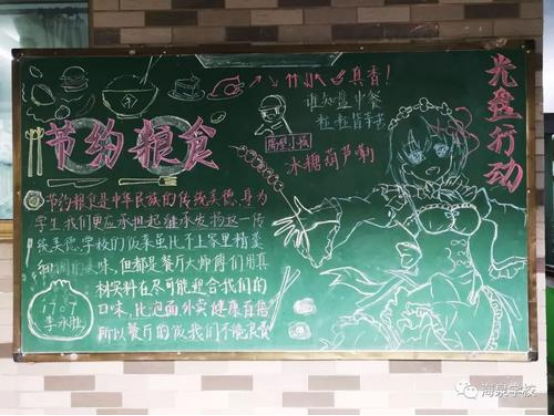 节约粮食
真香！
谁知盘中餐
粒粒皆辛苦
光盘行动
冰糖葫芦嘞
节约粮食是中华民族的传统美德，身为
学生我们更应承担起继承发扬这一传
统美德。学校的饭菜虽比不上家里精美
味，但都是餐厅大师傅们用真
材实料在尽可能迎合我们的
口味，比泡面外卖健康百倍
所以餐厅的饭我们不能浪费
1707
李永胜
海泉学校